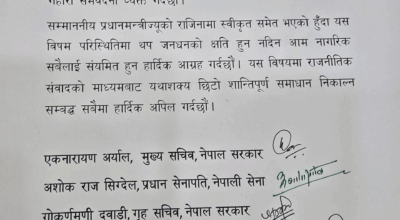 गहिरो समवेदना व्यक्त गर्दछौं।
सम्माननीय प्रधानमन्त्रीज्यूको राजिनामा स्वीकृत समेत भएको हुँदा यस
विषम परिस्थितिमा थप जनधनको क्षति हुन नदिन आम नागरिक
सबैलाई संयमित हुन हार्दिक आग्रह गर्दछौं। यस विषयमा राजनीतिक
संवादको माध्यमबाट यथाशक्य छिटो शान्तिपूर्ण समाधान निकाल्न
सम्बद्ध सबैमा हार्दिक अपिल गर्दछौं।
एकनारायण अर्याल, मुख्य सचिव, नेपाल सरकार
अशोक राज सिग्देल, प्रधान सेनापति, नेपाली सेना
गोकर्णमणी दुवाडी, गृह सचिव, नेपाल सरकार